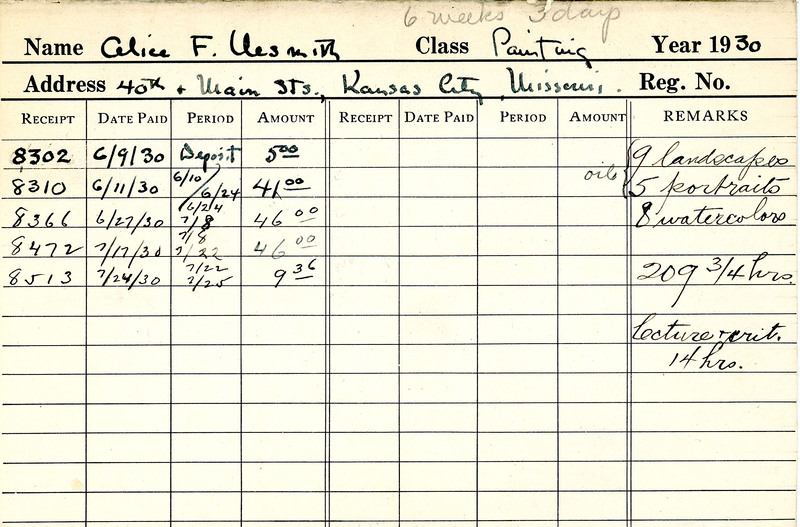 6 weeks 3 days
Name Alice F. Nesmith Class Painting Year 1930
Address 40th + Main Sts., Kansas City, Missouri. Reg. No.
RECEIPT DATE PAID PERIOD AMOUNT RECEIPT DATE PAID PERIOD AMOUNT REMARKS
8302 6/9/30 Deposit 5 00 oils { 9 landscapes
8310 6/11/30 6/10 / 6/24 41 00 5 portraits
8366 6/27/30 6/24 7/8 46 00 8 watercolors
8472 7/17/30 7/8 7/22 46 00
8513 7/24/30 7/22 7/25 9 36 209 3/4 hrs.
lecture + crit.
14 hrs.